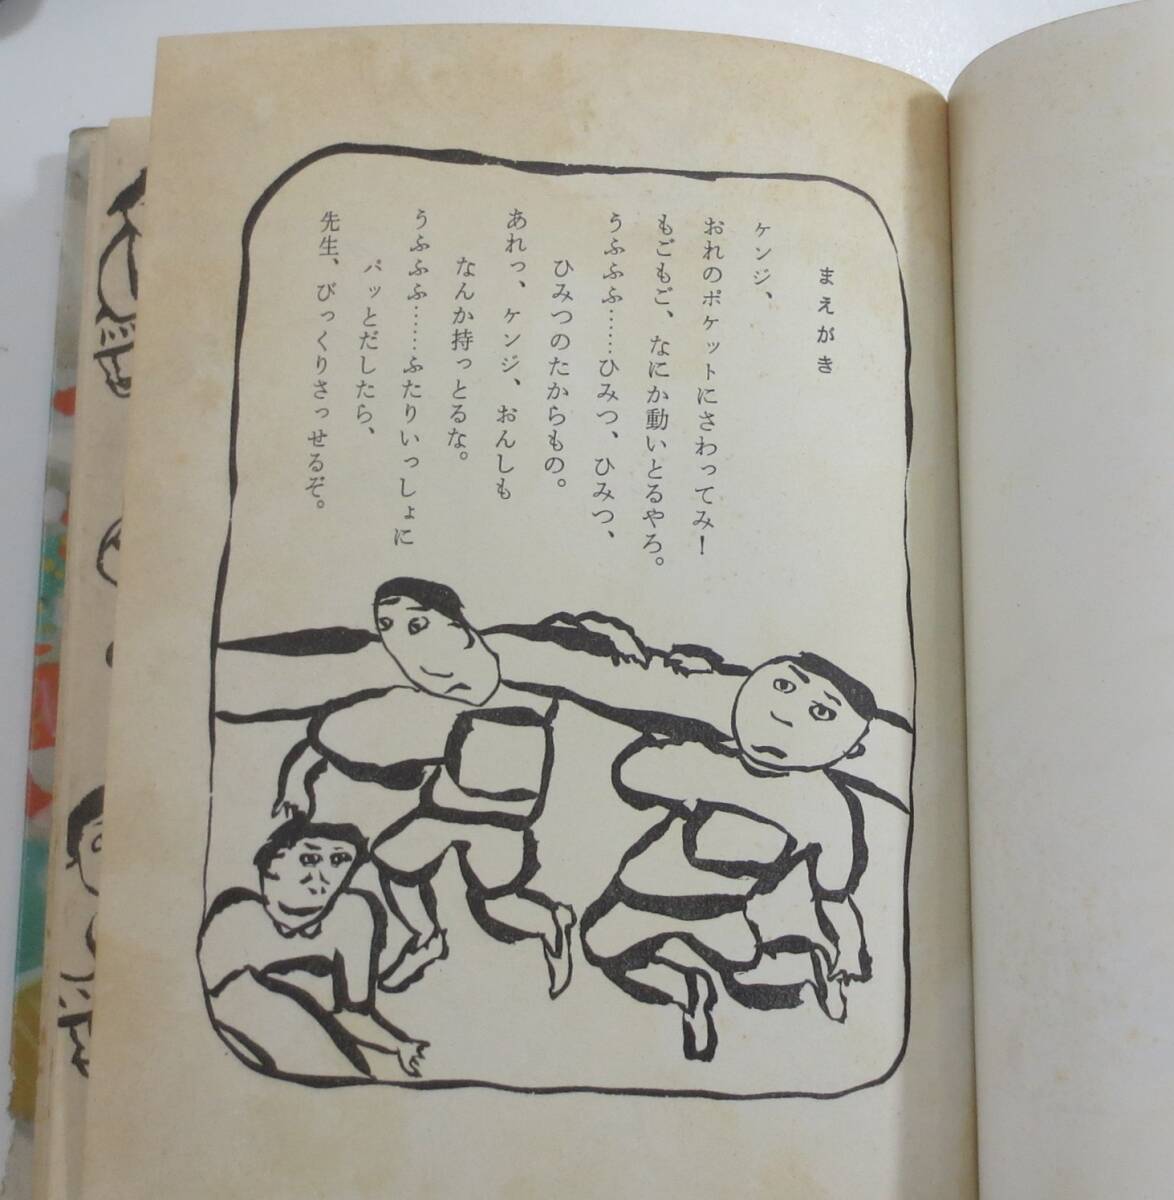 まえがき
ケンジ、
おれのポケットにさわってみ！
もごもご、なにか動いとるやろ。
うふふふ……ひみつ、ひみつ、
ひみつのたからもの。
あれっ、ケンジ、おんしも
なんか持っとるな。
うふふふ……ふたりいっしょに
パッとだしたら、
先生、びっくりさっせるぞ。